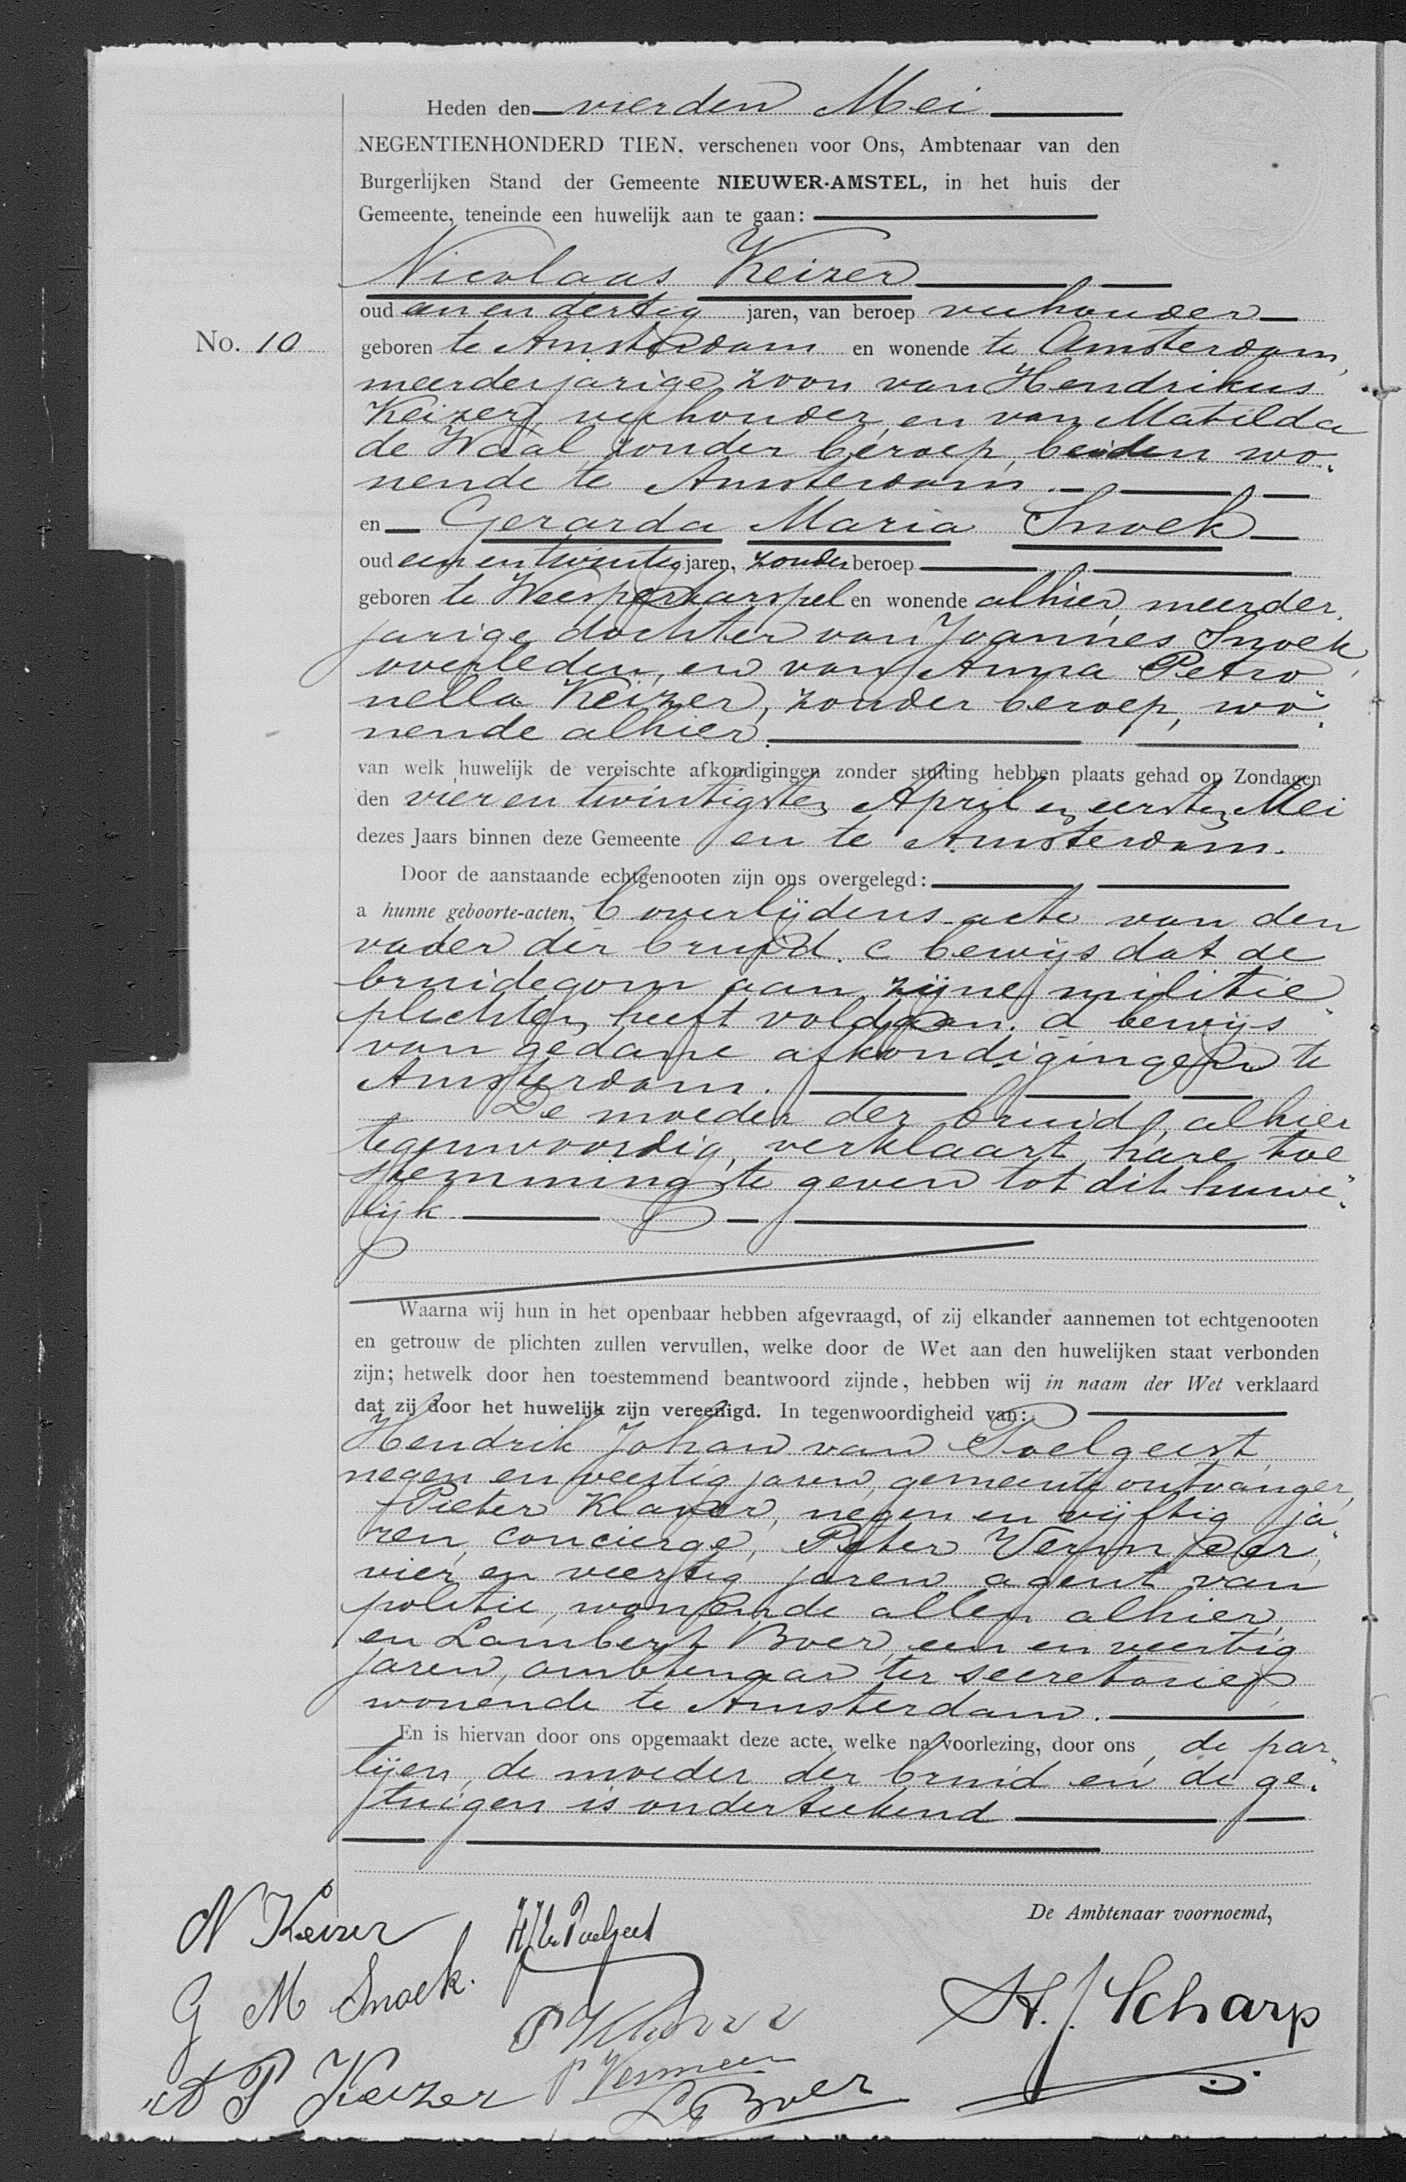 Heden den vierden Mei
NEGENTIENHONDERD TIEN. verschenen voor Ons, Ambtenaar van den
Burgerlijken Stand der Gemeente NIEUWER-AMSTEL, in het huis der
Gemeente, teneinde een huwelijk aan te gaan:
Nicolaas Keizer
oud een en dertig jaren, van beroep veehouder
No. 10
geboren te Amsterdam en wonende te Amsterdam,
meerderjarige zoon van Hendrikus
Keizer, veehouder, en van Matilda
de Waal, zonder beroep, beiden wo„
nende te Amsterdam.
en Gerarda Maria Snoek
oud een en twintig jaren, zonder beroep
geboren te Weesperkarspel en wonende alhier, meerder„
jarige dochter van Joannes Snoek,
overleden, en van Anna Petro„
nella Keizer, zonder beroep, wo„
nende alhier.
van welk huwelijk de vereischte afkondigingen zonder stuiting hebben plaats gehad op Zondagen
den vier en twintigsten April en eersten Mei
dezes Jaars binnen deze Gemeente en te Amsterdam.
Door de aanstaande echtgenooten zijn ons overgelegd:
a hunne geboorte-acten, b overlijdens acte van den
vader der bruid. c bewijs dat de
bruidegom aan zijne militie„
plichten heeft voldaan. d bewijs
van gedane afkondigingen te
Amsterdam.
De moeder der bruid, alhier
tegenwoordig, verklaart hare toe„
stemming te geven tot dit huwe„
lijk
Waarna wij hun in het openbaar hebben afgevraagd, of zij elkander aannemen tot echtgenooten
en getrouw de plichten zullen vervullen, welke door de Wet aan den huwelijken staat verbonden
zijn; hetwelk door hen toestemmend beantwoord zijnde, hebben wij in naam der Wet verklaard
dat zij door het huwelijk zijn vereenigd. In tegenwoordigheid van:
Hendrik Johan van Poelgeest,
negen en veertig jaren, gemeenteontvanger,
Pieter Klaver, negen en vijftig ja„
ren, concierge, Peter Vermeer,
vier en veertig jaren agent van
politie, wonende allen alhier,
en Lambert Boer, een en veertig
jaren, ambtenaar ter secretarie,
wonende te Amsterdam.
En is hiervan door ons opgemaakt deze acte, welke na voorlezing, door ons, de par„
tijen, de moeder der bruid en de ge„
tuigen is onderteekend
De Ambtenaar voornoemd,
N Keizer
HJ v Poelgeest
G M Snoek.
P Klaver
A. J. Scharp
A P Keizer
P Vermeer
L Boer